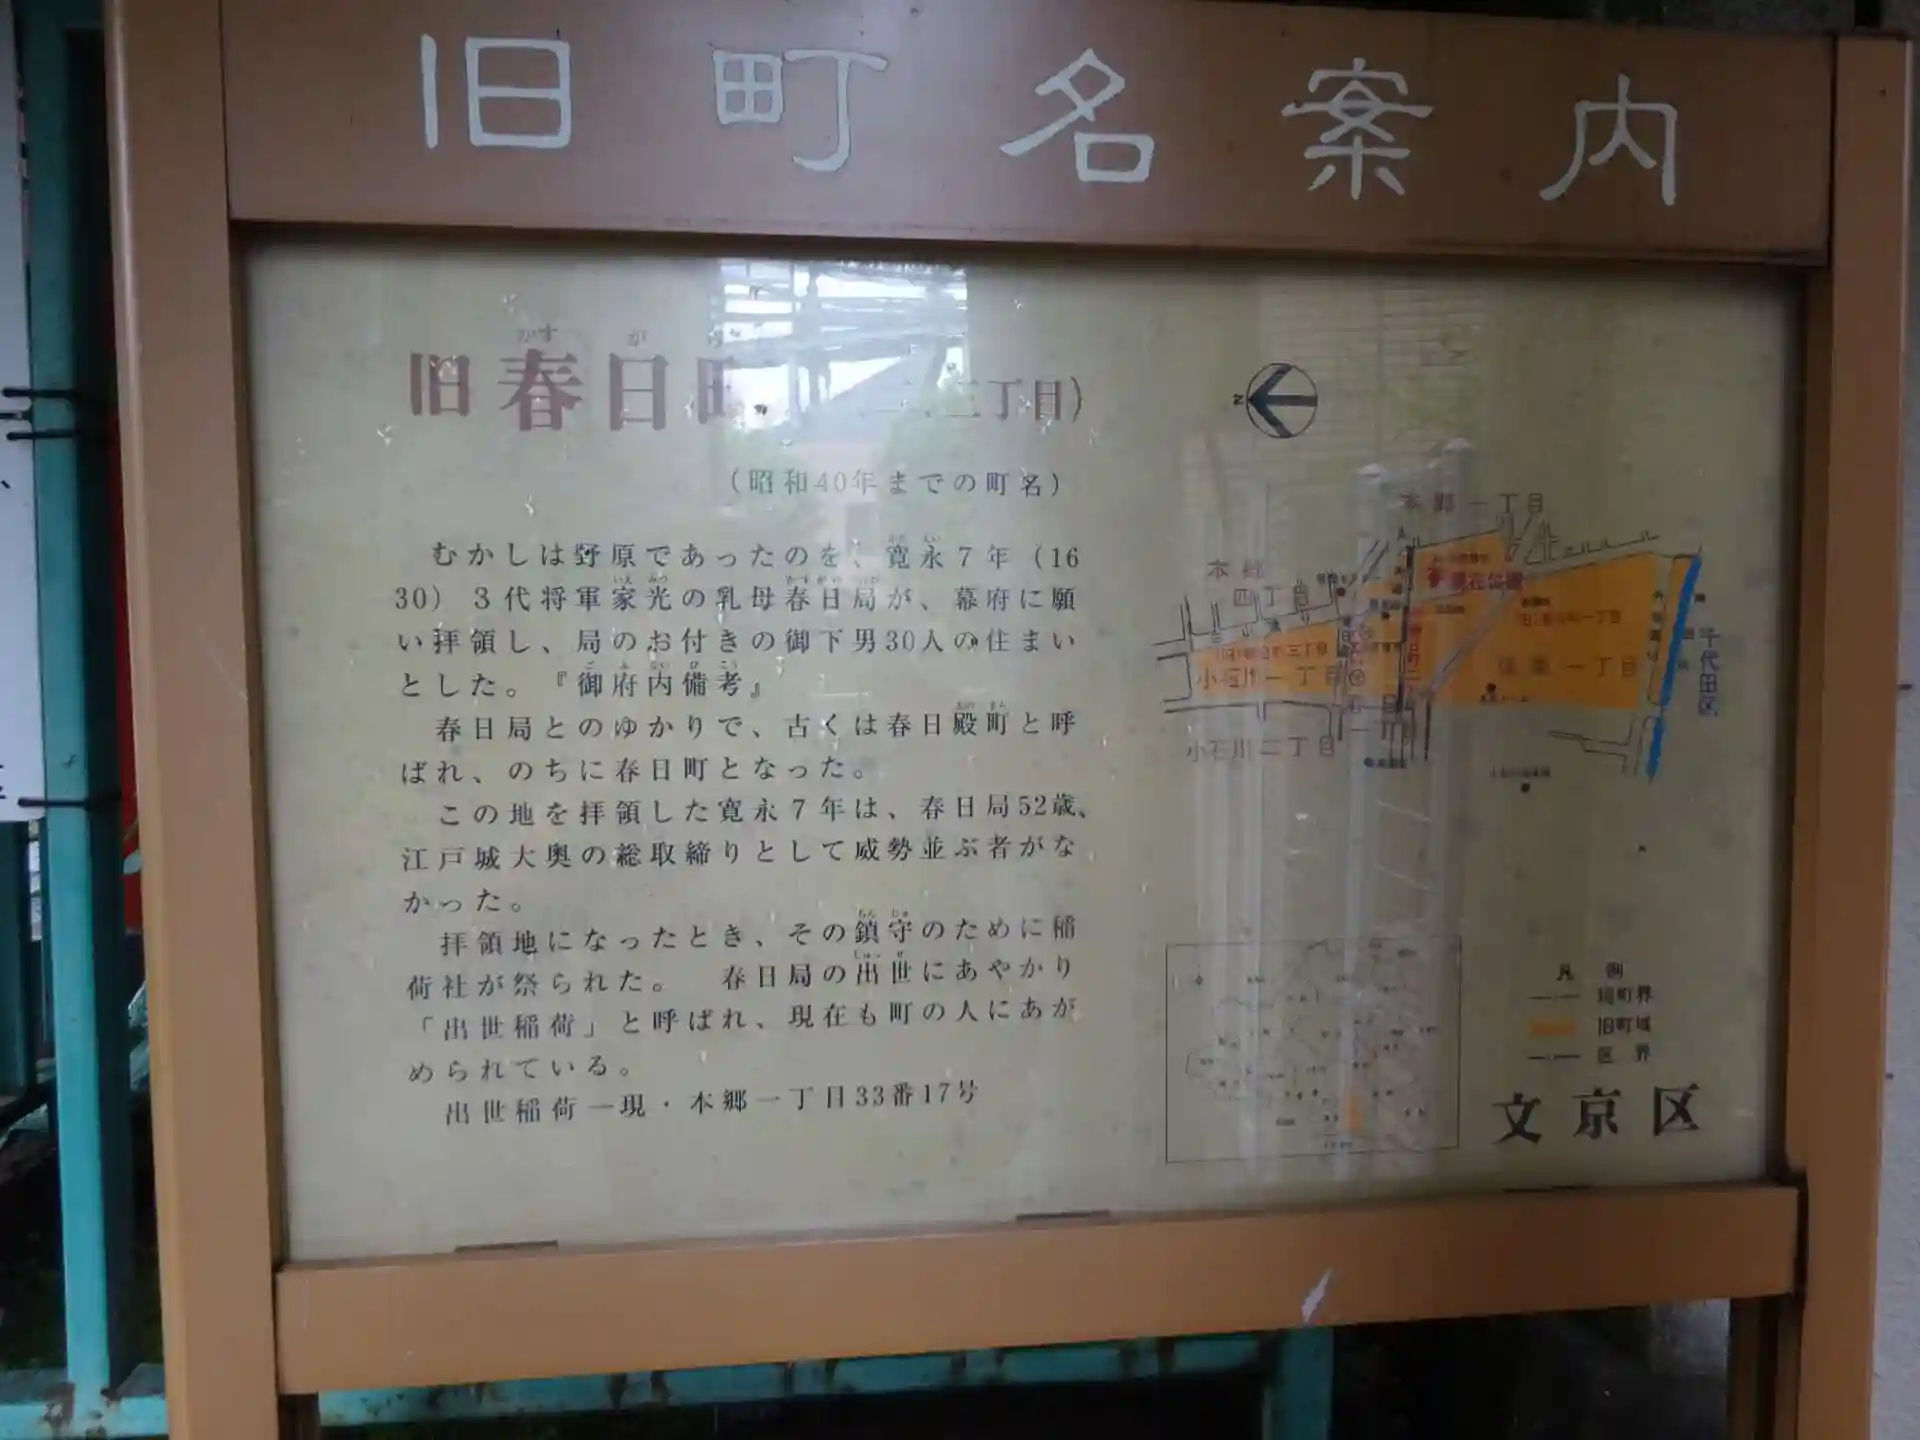 旧町名案内
旧春日町
二丁目）
（昭和40年までの町名）
むかしは野原であったのを、寛永７年（16
30）３代将軍家光の乳母春日局が、幕府に願
い拝領し、局のお付きの御下男30人の住まい
とした。『御府内備考』
春日局とのゆかりで、古くは春日殿町と呼
ばれ、のちに春日町となった。
この地を拝領した寛永７年は、春日局52歳、
江戸城大奥の総取締りとして威勢並ぶ者がな
かった。
拝領地になったとき、その鎮守のために稲
荷社が祭られた。　春日局の出世にあやかり
「出世稲荷」と呼ばれ、現在も町の人にあが
められている。
出世稲荷—現・本郷一丁目33番17号
N
本郷一丁目
本郷
四丁目
小石川一丁目
後楽一丁目
小石川二丁目
千代田区
凡　例
現町界
旧町域
区　界
文京区